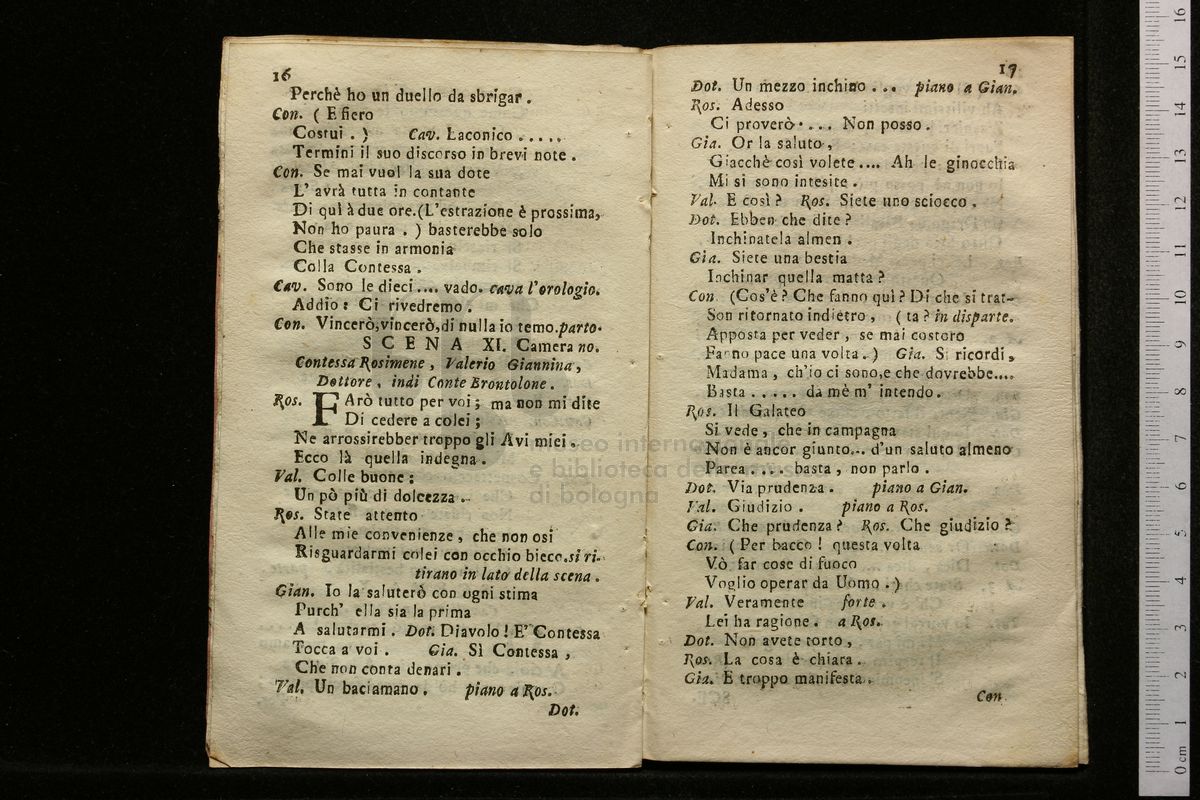 16
Perchè ho un duello da sbrigar.
Con. ( E fiero
Costui . ) Cav. Laconico .....
Termini il suo discorso in brevi note .
Con. Se mai vuol la sua dote
L' avrà tutta in contante
Di quì à due ore.(L'estrazione è prossima,
Non ho paura . ) basterebbe solo
Che stasse in armonia
Colla Contessa .
Cav. Sono le dieci .... vado. cava l'orologio.
Addio: Ci rivedremo .
Con. Vincerò,vincerò,di nulla io temo.parto.
SCENA XI. Camera no.
Contessa Rosimene , Valerio Giannina ,
Dottore , indi Conte Brontolone .
Ros. FArò tutto per voi ; ma non mi dite
Di cedere a colei ;
Ne arrossirebber troppo gli Avi miei .
Ecco là quella indegna .
Val. Colle buone :
Un pò più di dolcezza .
Ros. State attento
Alle mie convenienze , che non osi
Risguardarmi colei con occhio bieco.si ri-
tirano in lato della scena .
Gian. Io la saluterò con ogni stima
Purch' ella sia la prima
A salutarmi . Dot. Diavolo ! E' Contessa
Tocca a voi . Gia. Sì Contessa ,
Che non conta denari .
Val. Un baciamano . piano a Ros.
Dot.
17
Dot. Un mezzo inchino ... piano a Gian.
Ros. Adesso
Ci proverò .... Non posso .
Gia. Or la saluto ,
Giacchè così volete .... Ah le ginocchia
Mi si sono intesite .
Val. E così ? Ros. Siete uno sciocco .
Dot. Ebben che dite ?
Inchinatela almen .
Gia. Siete una bestia
Inchinar quella matta ?
Con (Cos'è ? Che fanno quì ? Di che si trat-
Son ritornato indietro , ( ta ? in disparte.
Apposta per veder , se mai costoro
Fanno pace una volta . ) Gia. Si ricordi ,
Madama , ch'io ci sono,e che dovrebbe....
Basta ..... da mè m' intendo .
Ros. Il Galateo
Si vede , che in campagna
Non è ancor giunto... d'un saluto almeno
Parea .... basta , non parlo .
Dot. Via prudenza . piano a Gian.
Val. Giudizio . piano a Ros.
Gia. Che prudenza ? Ros. Che giudizio ?
Con. ( Per bacco ! questa volta
Vò far cose di fuoco
Voglio operar da Uomo . )
Val. Veramente forte .
Lei ha ragione . a Ros.
Dot. Non avete torto ,
Ros. La cosa è chiara .
Gia. E troppo manifesta .
Con
museo internazionale
e biblioteca della musica
di bologna
0 cm 1 2 3 4 5 6 7 8 9 10 11 12 13 14 15 16